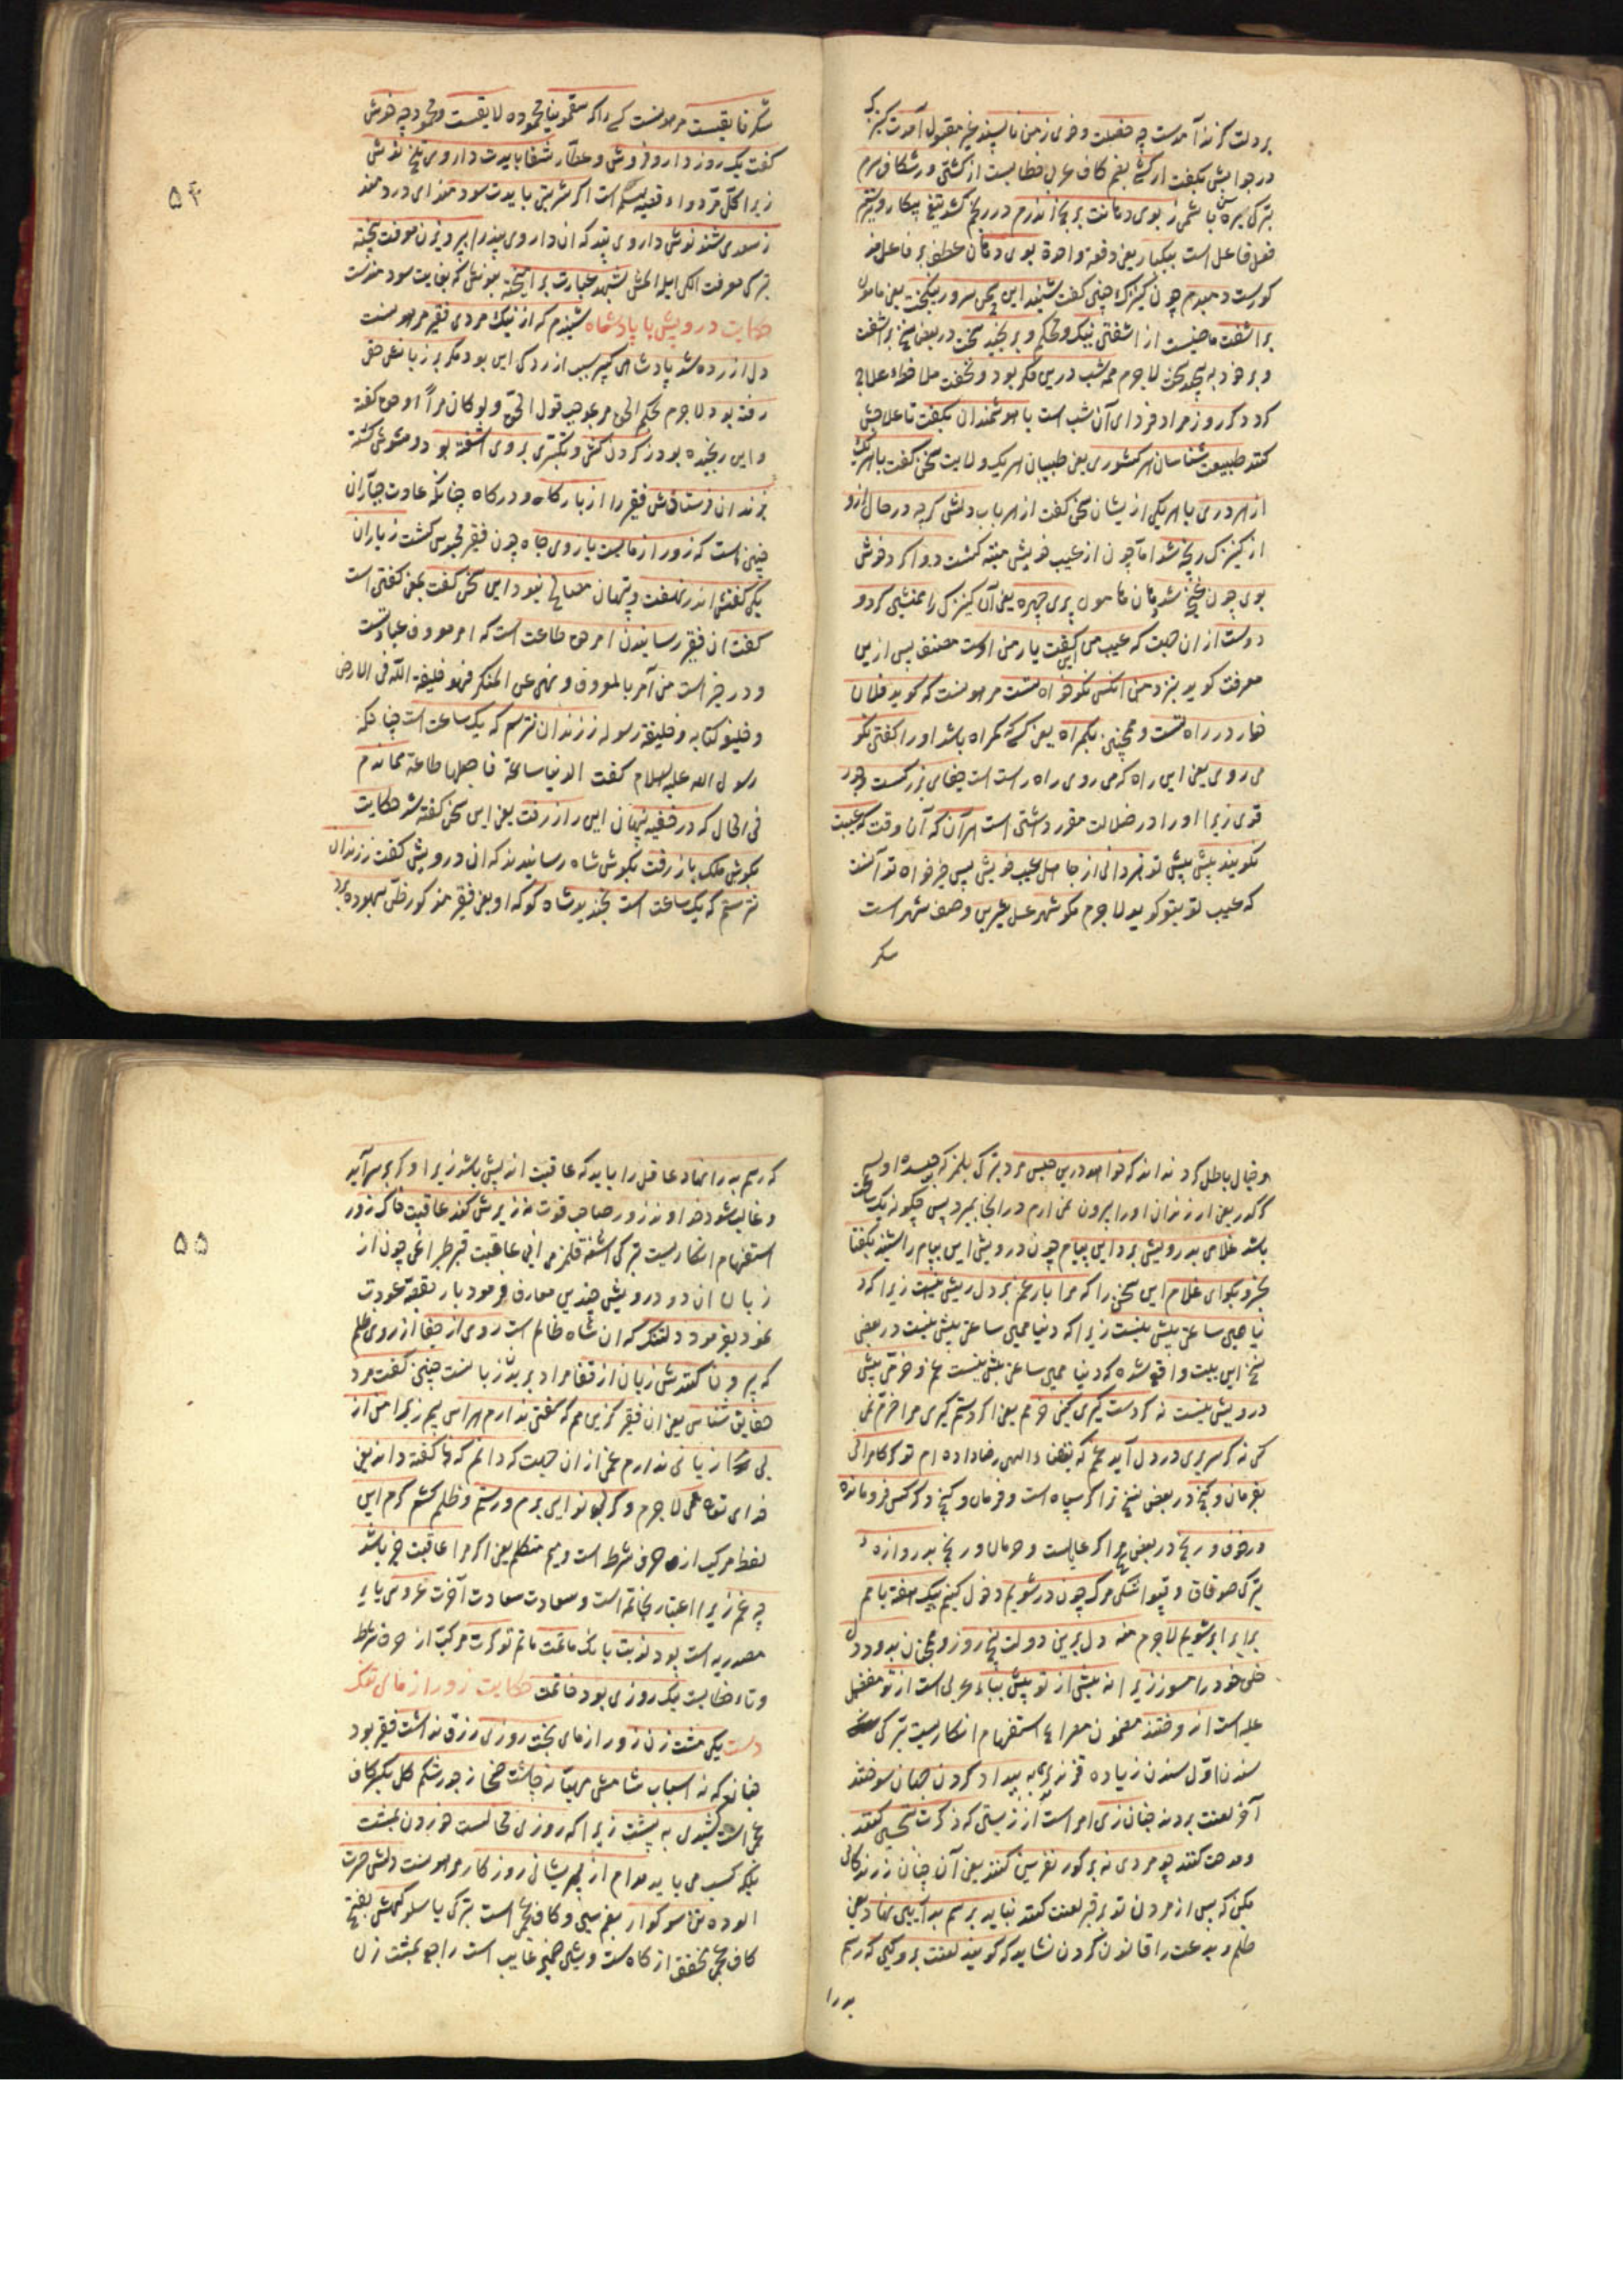 بر دلت کزند آمدست چه خصلت و خوی ز من ناپسند غیر مقبول آمدت کنیزک
در جوابش بگفت ار کشی بفتح کاف عربی خطابست از کشتن ور شکافی سرم
ز بوی دهانت برنج اندرم در رنج کشد تیغ پیکار و تیر ستم
فعل فاعل است بیکبار یعنی دفعة واحدة بوی دهان عطف بر فاعل مذ
کورست دمبدم چون کنیزک چنین گفت شنید این سخن سرور نیکبخت یعنی مامون
بر آشفت ماضیست از آشفتن نیک و محکم و برنجید سخت در بعض نسخ بر آشفت
و بر خود بپیچید سخت لاجرم همه شب درین فکر بود و نخفت ملاحظه علاج
کرد دگر روز مراد فردای آن شب است با هوشمندان بگفت تا علاجش
کنند طبیعت شناسان هر کشوری یعنی طبیبان هر یک ولایت سخن گفت با هر یک
از هر دری با هر یکی ازیشان سخن گفت از هر باب دلش گرچه در حال ازو
از کنیزک رنجه شد اما چون از عیب خویش منبه گشت دوا کرد خوش
بوی چون غنچه شد دهان مامون پری چهره یعنی آن کنیزک را همنشین کرد و
دوست از ان جهت که عیب من این گفت یار من اوست مصنف پس ازین
معرفت گوید بنزد من آنکس نکو خواه تست مرهونست که گوید فلان
خار در راه تست و همچنین بگمراه یعنی کسی که گمراه باشد او را گفتن نکو
می روی یعنی این راه که می روی راه راست است جفای بزرگست و جور
قوی زیرا او را در ضلالت مقرر داشتن است هر آن که آن وقت که عیبت
نگویند پیش پیش تو نمر دانی از جاهلی عیب خویش پس خیر خواه تو آنست
که عیب تو بتو گوید لاجرم مگو شهد عسل شیرین وصف شهد است
شکر
شکر فایقست مرهونست کسی را که سقمونیا محموده لایقست محموده چه خوش
گفت یک روز دارو فروش و عطار شفا بایدت داروی تلخ نوش
زیرا کل مر دواء قضیه مسلم است اگر شربتی بایدت سودمند ای دردمند
ز سعدی شنو نوش داروی پند که ان داروی پند را پرویزن معرفت بیخته
بترکی معرفت الکی ایله المش بشهد عبارت بر آمیخته بنوش که بغایت سودمندست
حکایت درویش با پادشاه شنیدم که از نیک مردی فقیر مرهونست
دل آزرده شد پادشاهی کبیر سبب آزردگی این بود مگر بر زبانش حقی
رفته بود لاجرم بحکم الحق مر بموجب قول الحق ولو کان مراً او حق گفته
و این رنجیده بود ز گردن کشی و تکبری بر وی آشفته بود و مشوش گشته
بزندان فرستادش فقیر را از بارگاه و درگاه چنانکه عادت جباران
چنین است که زور ازمایست بازوی جاه چون فقیر محبوس گشت ز یاران
یکی گفتش اندر نهفت و پنهان مصالح نبود این سخن گفت یعنی گفتن است
گفت ان فقیر رسانیدن امر حق طاعت است که امر معروف عبادتست
و در خبر است من آمر بالمعروف و نهی عن المنکر فهو خلیفة الله فی الارض
و خلیفة کتابه و خلیفة رسوله ز زندان نترسم که یک ساعت است چنانکه
رسول الله علیه السلام گفت الدنیا ساعة فاجعلها طاعة همان دم
فی الحال که در خفیه پنهان این راز رفت یعنی این سخن گفته شد حکایت
بگوش ملک باز رفت بگوش شاه رسانیدند که ان درویش گفت ز زندان
نترسم که یک ساعت است بخندید شاه کو که او یعنی فقیر مذکور ظن بیهوده برد
و خیال باطل کرد نداند که خواهد درین حبس مرد بترکی بلمز که حبسده اولسه
کرکدر یعنی از زندان او را بیرون نمی ارم در انجا بمیرد پس چگونه یک ساعت
باشد غلامی بدرویش برد این پیام چون درویش این پیام را شنید بگفتا
بخسرو بگو ای غلام این سخن را که مرا بار غم بر دل ریش نیست زیرا که د
نیا همین ساعتی بیش نیست زیرا که دنیا همین ساعتی بیش نیست در بعض
نسخ این بیت واقع شده که دنیا همین ساعتی بیش نیست غم و خرمی پیش
درویش نیست نه گر دستگیری کنی خرمم یعنی اگر دستم گیری مرا خرم نمی
کنی نه گر سر بری در دل آید غمم که بقضاء الهی رضا داده ام تو گر کامرانی
بفرمان و گنج در بعض نسخ ترا گر سپاه است و فرمان و گنج دگر کس فرومانده
در ضعف و رنج در بعض نسخ مرا گر عیالست و حرمان و رنج بدروازه
بترکی صوقاق و قپو اشکی مرگ چون در شویم دخول کنیم بیک هفته با هم
برابر شویم لاجرم منه دل برین دولت پنج روز و همچنان بدود دل
خلق خود را مسوز زیرا نه پیش از تو پیش بباء عربی است از تو مفضل
علیه است اندوختند مضمون مصراع استفهام انکاریست بترکی
سندن اول سندن زیاده قزندیلر به بیداد کردن جهان سوختند
آخر لعنت بردند چنان زی امر است از زیستن که ذکرت تحسین کنند
و مدحت کنند چو مردی نه بر گور نفرین کنند یعنی آن چنان زندگانی
بکن که پس از مردن تو بر قبر لعنت کنند نباید برسم بد آیین نهاد یعنی
ظلم و بدعت را قانون کردن نشاید که گویند لعنت برو کین که رسم
بد را
که رسم بد را نهاد عاقل را باید که عاقبت اندیش باشد زیرا و گر بر سرآید
و غالب شود خداوند زور صاحب قوت نه زیرش کند عاقبت خاک گور
استفهام انکاریست بترکی التنه قلمزمی انی عاقبت قبر طپراغی چون از
زبان ان دو درویش چندین معارف فرمود بار بقصه عودت
نمود بفرمود دلتنگ که ان شاه ظالم است روی از جفا از روی ظلم
که بیرون کنندش زبان از قفا مراد بریدن زبانست چنین گفت مرد
حقایق شناس یعنی ان فقیر کزین هم که گفتی ندارم هراس بیم زیرا من از
بی زبانی ندارم غمی از ان جهت که دانم که نا گفته داند یعنی
خدای تعالی لاجرم و گر بینوایی برم ور ستم و ظلم کشم گرم این
لفظ مرکب از حرف شرط است و میم متکلم یعنی اگر مرا عاقبت خیر باشد
چه غم زیرا اعتبار بخاتمه است و سعادت سعادت آخرت عروسی یای
مصدریه است بود نوبت بانک ماتمت ماتم تو گرت مرکب از حرف شرط
و تاء خطابست نیک روزی بود خاتمت حکایت زور ازمای تنگ
دست یکی مشت زن زور ازمای بخت روزی رزق نداشت فقیر بود
چنانکه نه اسباب شامش مهیا نه چاشت ضحی ز جور شکم گل بکسر کاف
عجمی است کشیدی به پشت زیرا که روزی محالست خوردن بمشت
بلکه کسب می باید مدام از پریشانی روزگار مرهونست دلش حسرت
آلوده تنش سوکوار بضم سین و کاف عجمی است بترکی یاسلو گهش بفتح
کاف عجمی مخفف از گاه ست و شین ضمیر غایب است راجع بمشت زن
۵۴
۵۵